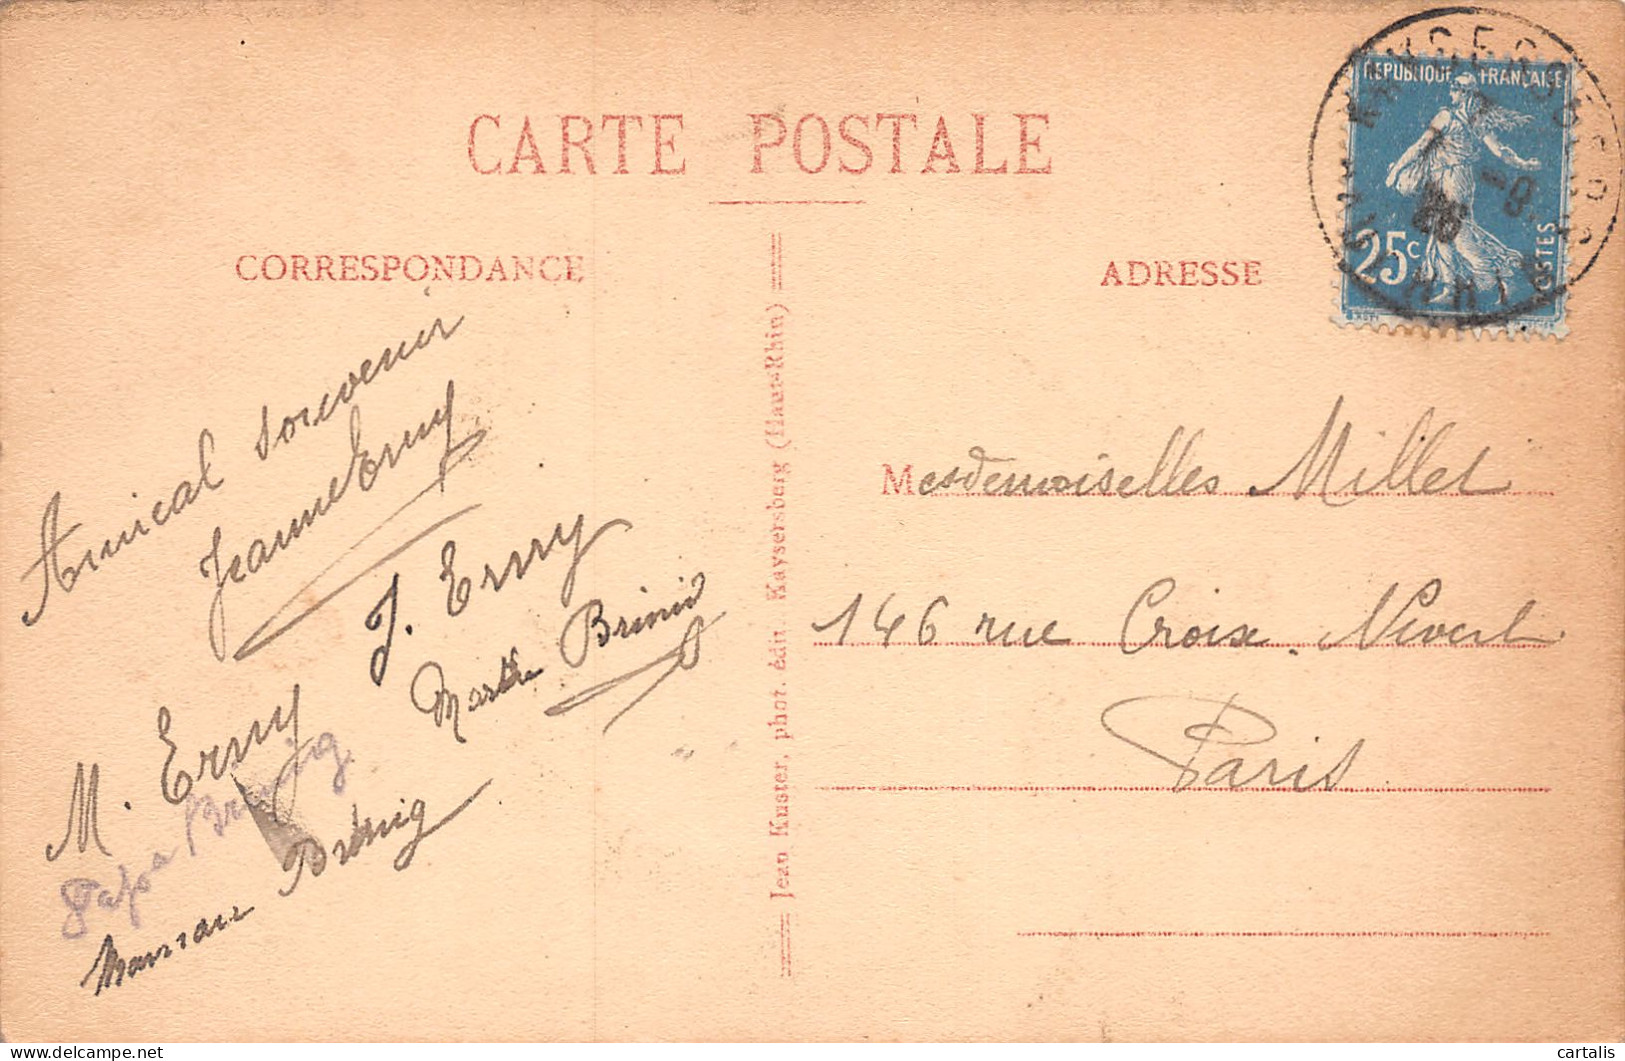 CARTE POSTALE
CORRESPONDANCE
Amical souvenir
Jeanne Erny
J. Erny
M. Erny
Papa
Maman
Jean Kuster, phot. édit. Kaysersberg (Haut-Rhin)
ADRESSE
REPUBLIQUE FRANÇAISE
25c
POSTES
Mesdemoiselles Millet
146 rue Croix. Nivert
Paris
delcampe.net
cartalis